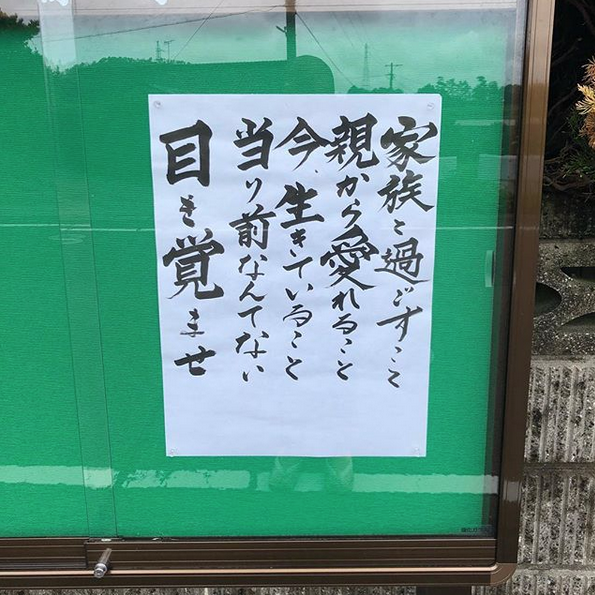 家族と過ごすこと
親から愛れること
今、生きていること
当り前なんてない
目を覚ませ